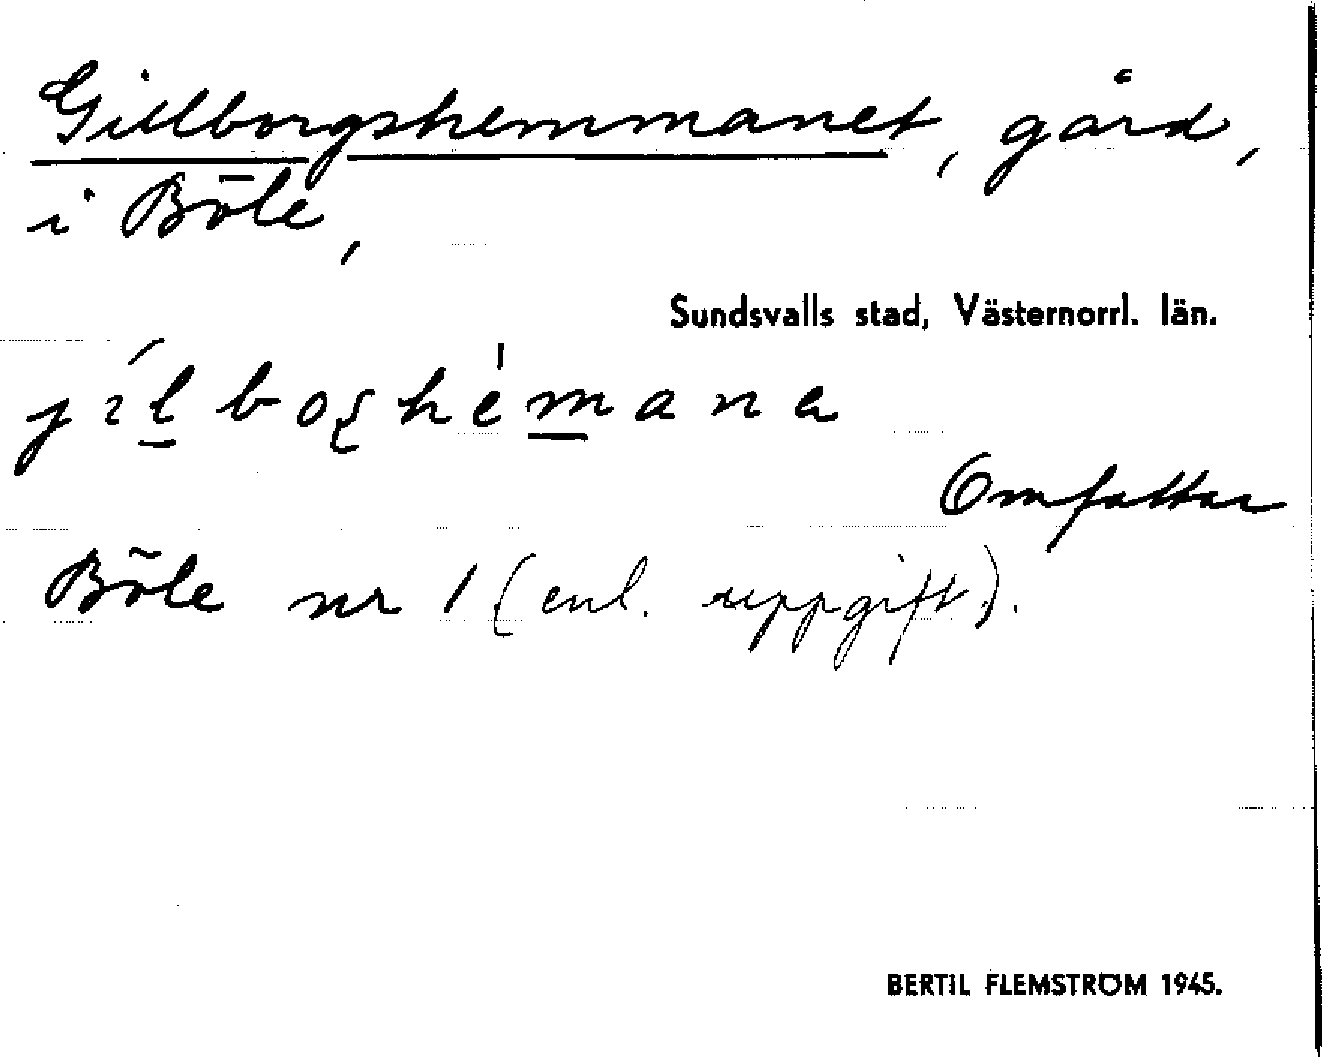 Gillborgshemmanet, gård,
i Böle,
Sundsvalls stad, Västernorrl. län.
Omfattar
Böle nr 1 (enl. uppgift).
BERTIL FLEMSTRÖM 1945.